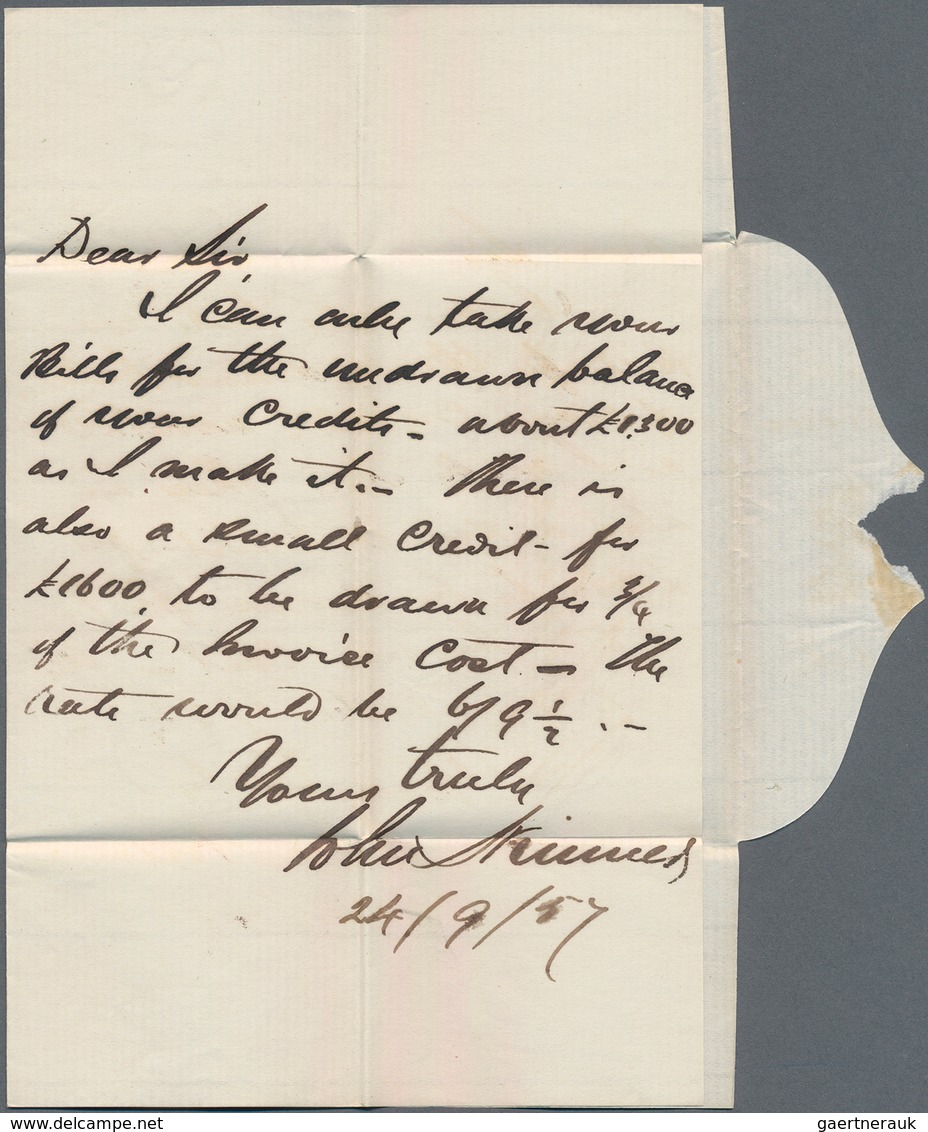 Dear Sir
I can only take your
Bills for the undrawn balance
of your Credits - about £1300
as I make it. - There is
also a small Credit - for
£1600 to be drawn for 3/4
of the Invoice Cost - The
rate would be 6/9 1/2 . -
Yours truly
John Skinner
24/9/57
www.delcampe.net
gaertnerauk